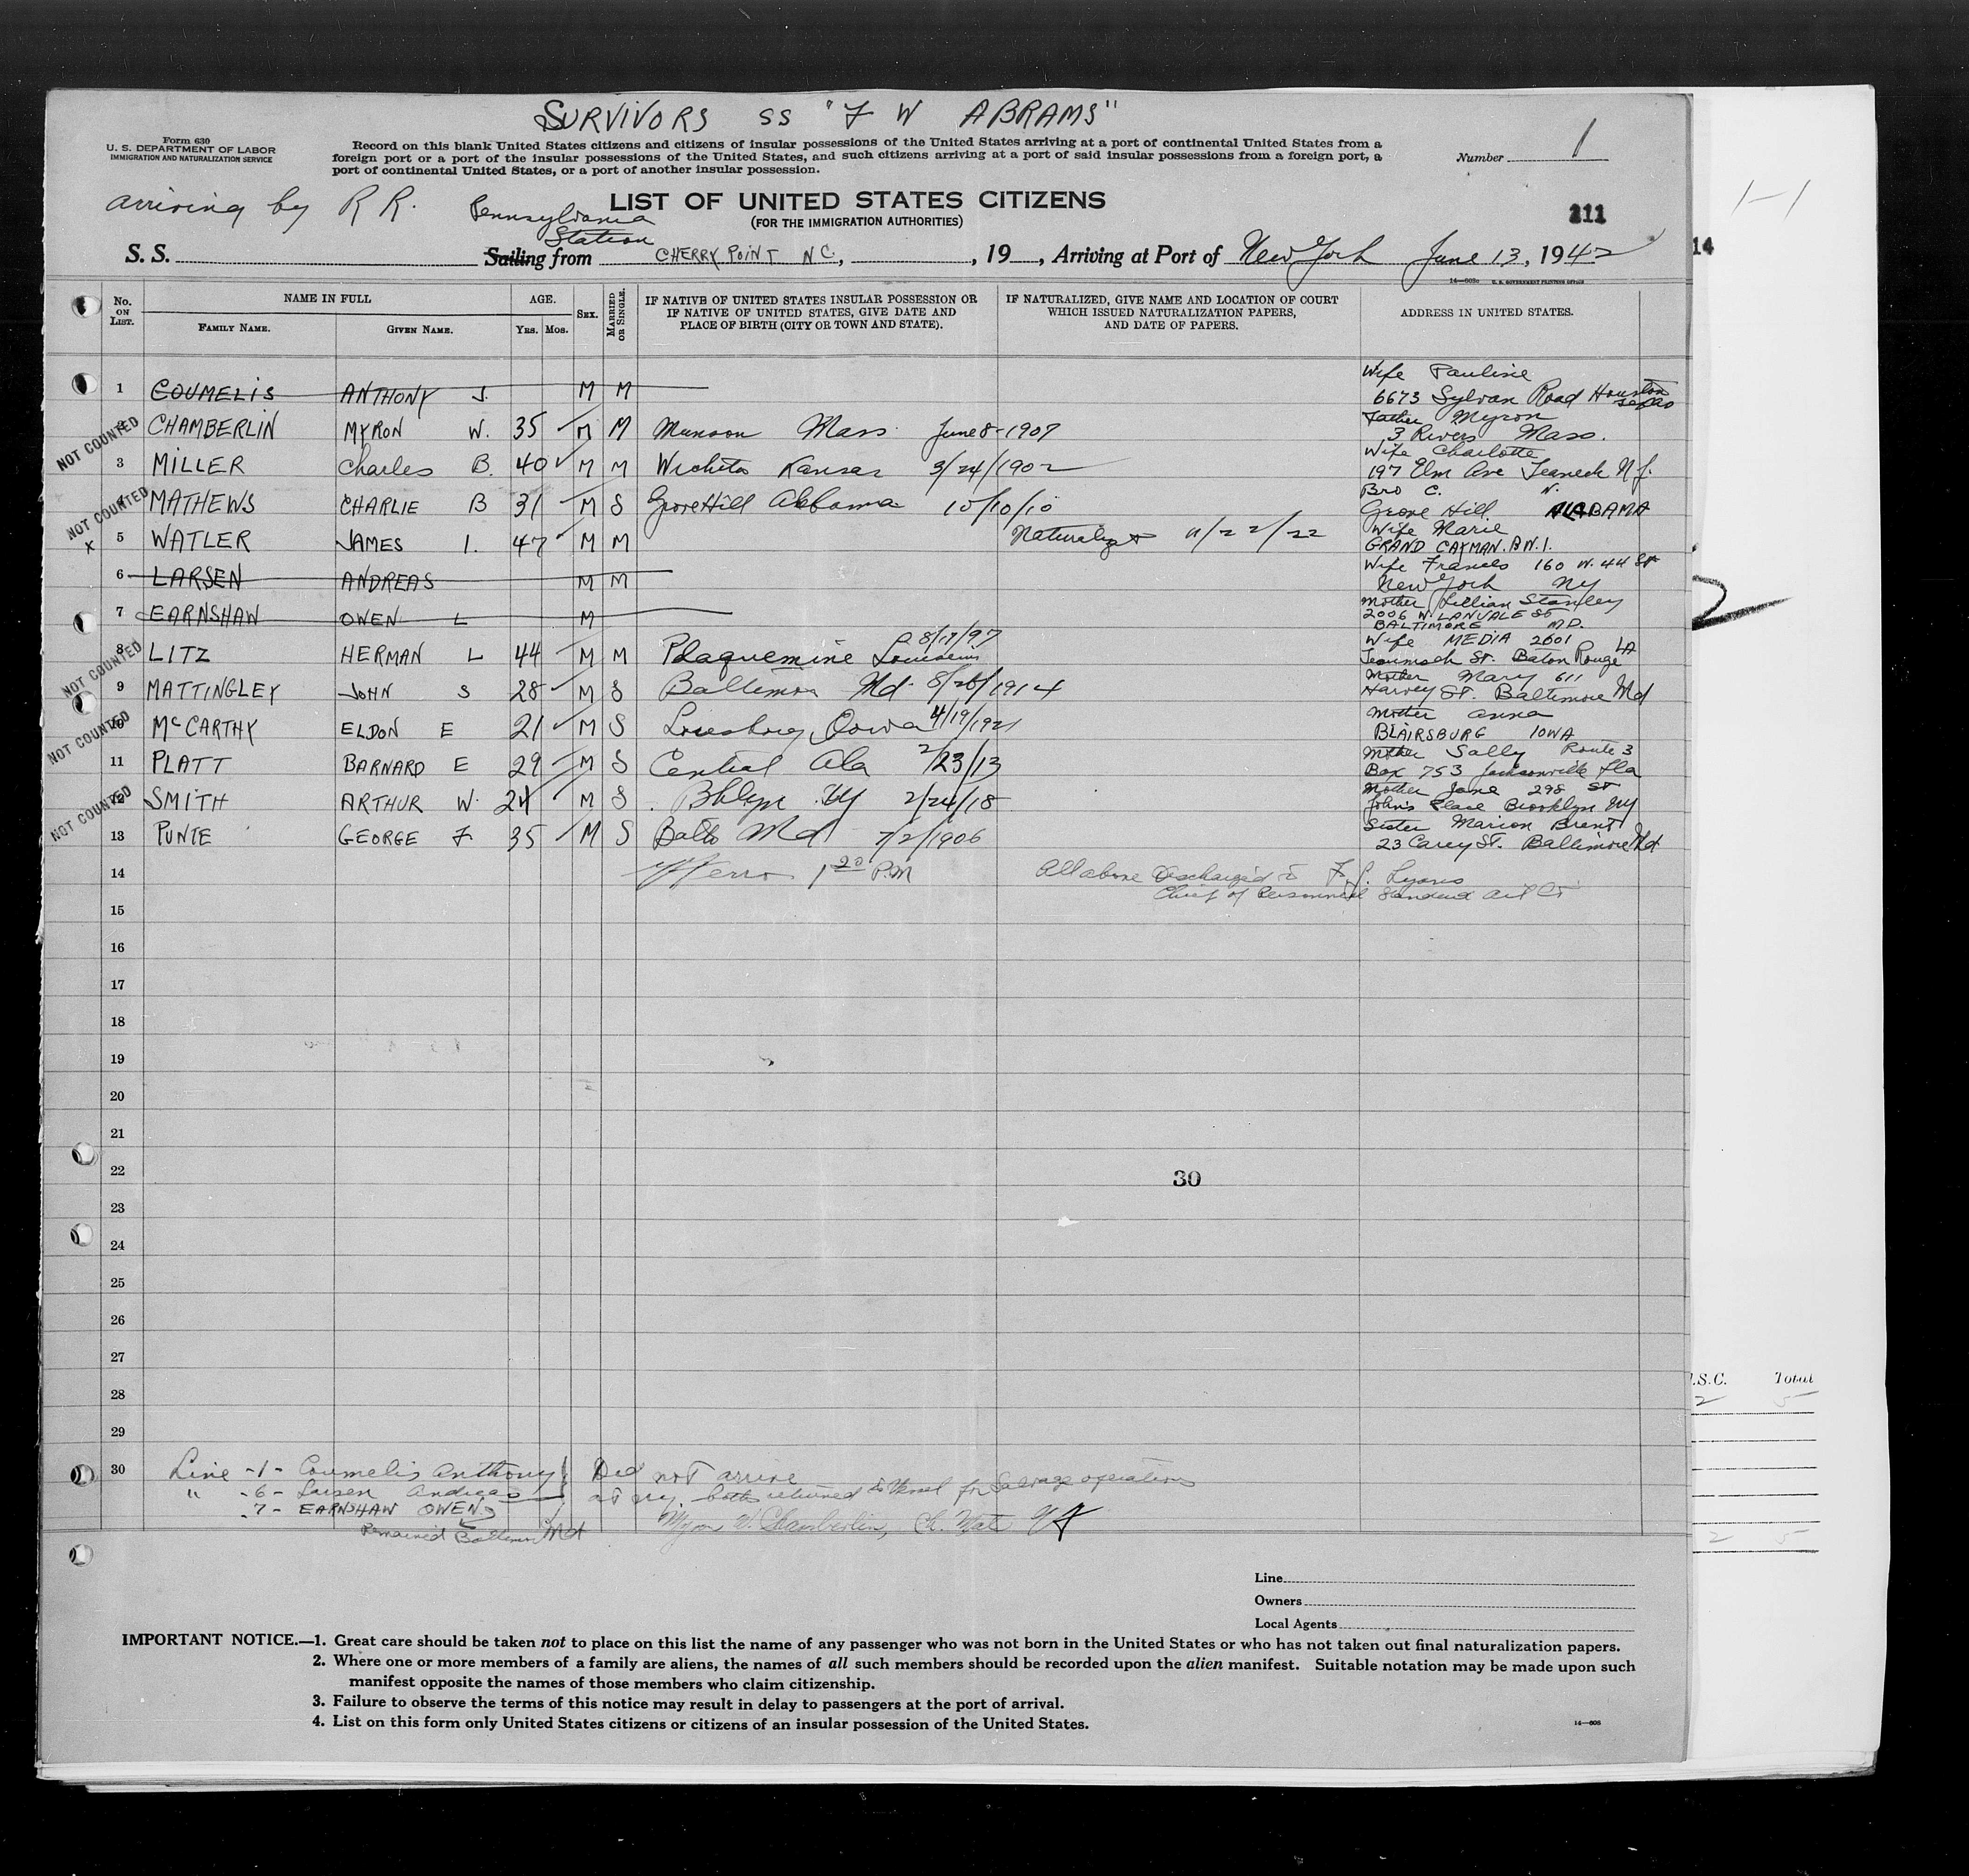 SURVIVORS SS "F W ABRAMS"
Form 630
U. S. DEPARTMENT OF LABOR
IMMIGRATION AND NATURALIZATION SERVICE
Record on this blank United States citizens and citizens of insular possessions of the United States arriving at a port of continental United States from a
foreign port or a port of the insular possessions of the United States, and such citizens arriving at a port of said insular possessions from a foreign port, a
port of continental United States, or a port of another insular possession.
Number 1
1-1
arriving by R R. Pennsylvania Station
LIST OF UNITED STATES CITIZENS
(FOR THE IMMIGRATION AUTHORITIES)
211
14
S. S. Sailing from CHERRY POINT N C., , 19 , Arriving at Port of New York June 13, 1942
14—605c U. S. GOVERNMENT PRINTING OFFICE
No. ON LIST. NAME IN FULL FAMILY NAME. GIVEN NAME. AGE. Yrs. Mos. SEX. MARRIED OR SINGLE.
IF NATIVE OF UNITED STATES INSULAR POSSESSION OR
IF NATIVE OF UNITED STATES, GIVE DATE AND
PLACE OF BIRTH (CITY OR TOWN AND STATE).
IF NATURALIZED, GIVE NAME AND LOCATION OF COURT
WHICH ISSUED NATURALIZATION PAPERS,
AND DATE OF PAPERS.
ADDRESS IN UNITED STATES.
1 COUMELIS ANTHONY J. M M Wife Pauline
6673 Sylvan Road Houston Texas
NOT COUNTED CHAMBERLIN MYRON W. 35 M M Munson Mass. June 8-1907 Father Myron
3 Rivers Mass.
3 MILLER Charles B. 40 M M Wichita Kansas 3/24/1902 Wife Charlotte
197 Elm Ave Teaneck N.J.
NOT COUNTED MATHEWS CHARLIE B 31 M S Grove Hill Alabama 10/10/10 Bro C. N.
Grove Hill ALABAMA
x 5 WATLER JAMES I. 47 M M Naturalized 11/22/22 Wife Marie
GRAND CAYMAN. B.W.I.
6 LARSEN ANDREAS M M Wife Frances 160 W. 44 St
New York NY
7 EARNSHAW OWEN L M Mother Lillian Stanley
2006 W. LANVALE ST
BALTIMORE MD.
NOT COUNTED 8 LITZ HERMAN L 44 M M Plaquemine Louisiana 8/17/97 Wife MEDIA 2601
St. Baton Rouge LA
9 MATTINGLEY JOHN S 28 M S Baltimore Md. 8/26/1914 Mother Mary 611
Harvey St. Baltimore Md
NOT COUNTED McCARTHY ELDON E 21 M S Iowa 4/19/1921 Mother Anna
BLAIRSBURG IOWA
11 PLATT BARNARD E 29 M S Central Ala 2/23/13 Mother Sally Route 3
Box 753 Jacksonville Fla
NOT COUNTED SMITH ARTHUR W. 24 M S Bklyn NY 2/24/18 Mother Jane 298 St
John's Place Brooklyn NY
13 PUNTE GEORGE F. 35 M S Balto Md 7/2/1906 Sister Marion Brent
23 Carey St. Baltimore Md
14 1 20 P.M All above Discharged to F. J. Lyons
Chief of Personnel Standard Oil Co
15
16
17
18
19
20
21
22
30
23
24
25
26
27
28
29
30 Line -1- Coumelis Anthony Did not arrive
" -6- Larsen Andreas at NY. both returned to Vessel for Salvage operations
-7- EARNSHAW OWEN
Remained Baltimore Md
Myron W. Chamberlin, Ch. Mate
.S.C. Total
2 5
2 5
Line
Owners
Local Agents
IMPORTANT NOTICE.—1. Great care should be taken not to place on this list the name of any passenger who was not born in the United States or who has not taken out final naturalization papers.
2. Where one or more members of a family are aliens, the names of all such members should be recorded upon the alien manifest. Suitable notation may be made upon such
manifest opposite the names of those members who claim citizenship.
3. Failure to observe the terms of this notice may result in delay to passengers at the port of arrival.
4. List on this form only United States citizens or citizens of an insular possession of the United States.
14—605